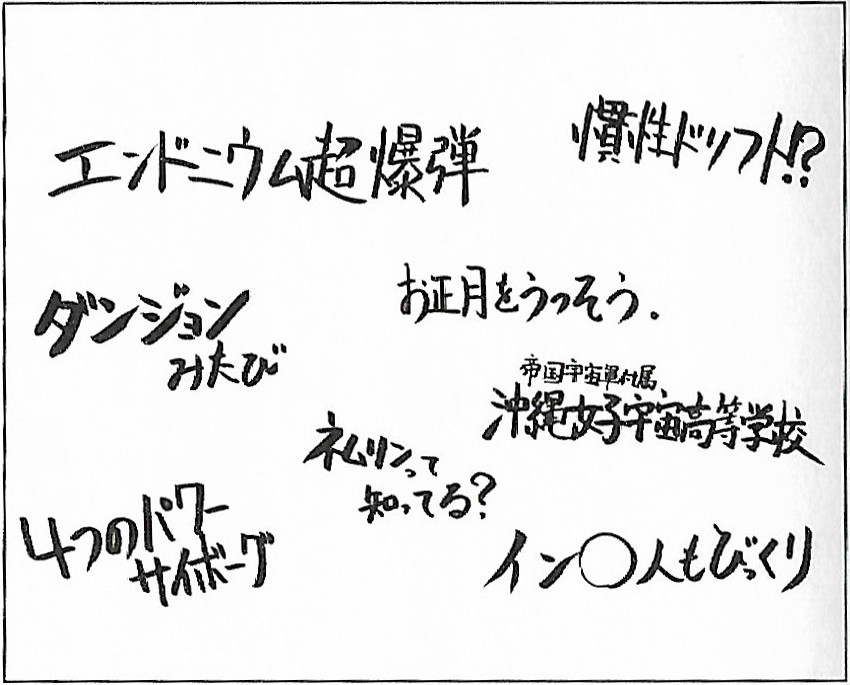 エンドニウム超爆弾
慣性ドリフト!?
ダンジョン
みたび
お正月をうっそう.
帝国宇宙軍付属、
沖縄女子宇宙高等学校
ネムリンって
知ってる?
4つのパワー
サイボーグ
イン◯人もびっくり